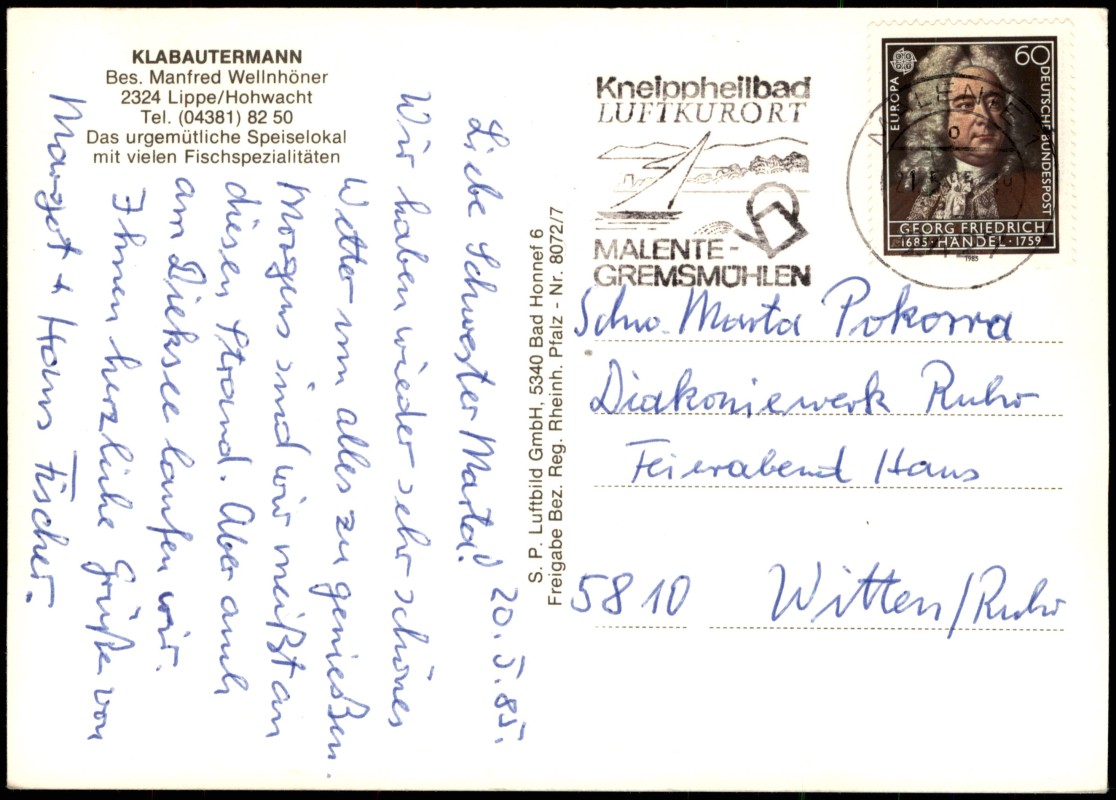 KLABAUTERMANN
Bes. Manfred Wellnhöner
2324 Lippe/Hohwacht
Tel. (04381) 82 50
Das urgemütliche Speiselokal
mit vielen Fischspezialitäten
20.5.85.
Liebe Schwester Marta!
Wir haben wieder sehr schönes
Wetter um alles zu genießen.
Morgens sind wir meißt an
diesen Strand. Aber auch
am Dieksee laufen wir.
Ihnen herzliche Grüße von
Margot + Hans Fischer.
S. P. Luftbild GmbH, 5340 Bad Honnef 6
Freigabe Bez. Reg. Rheinh. Pfalz - Nr. 8072/7
Kneippheilbad
LUFTKURORT
MALENTE-
GREMSMÜHLEN
60
EUROPA
DEUTSCHE BUNDESPOST
GEORG FRIEDRICH
1685 · HÄNDEL · 1759
1985
Schw. Marta Pokorra
Diakoniewerk Ruhr
Feierabend Haus
5810 Witten/Ruhr